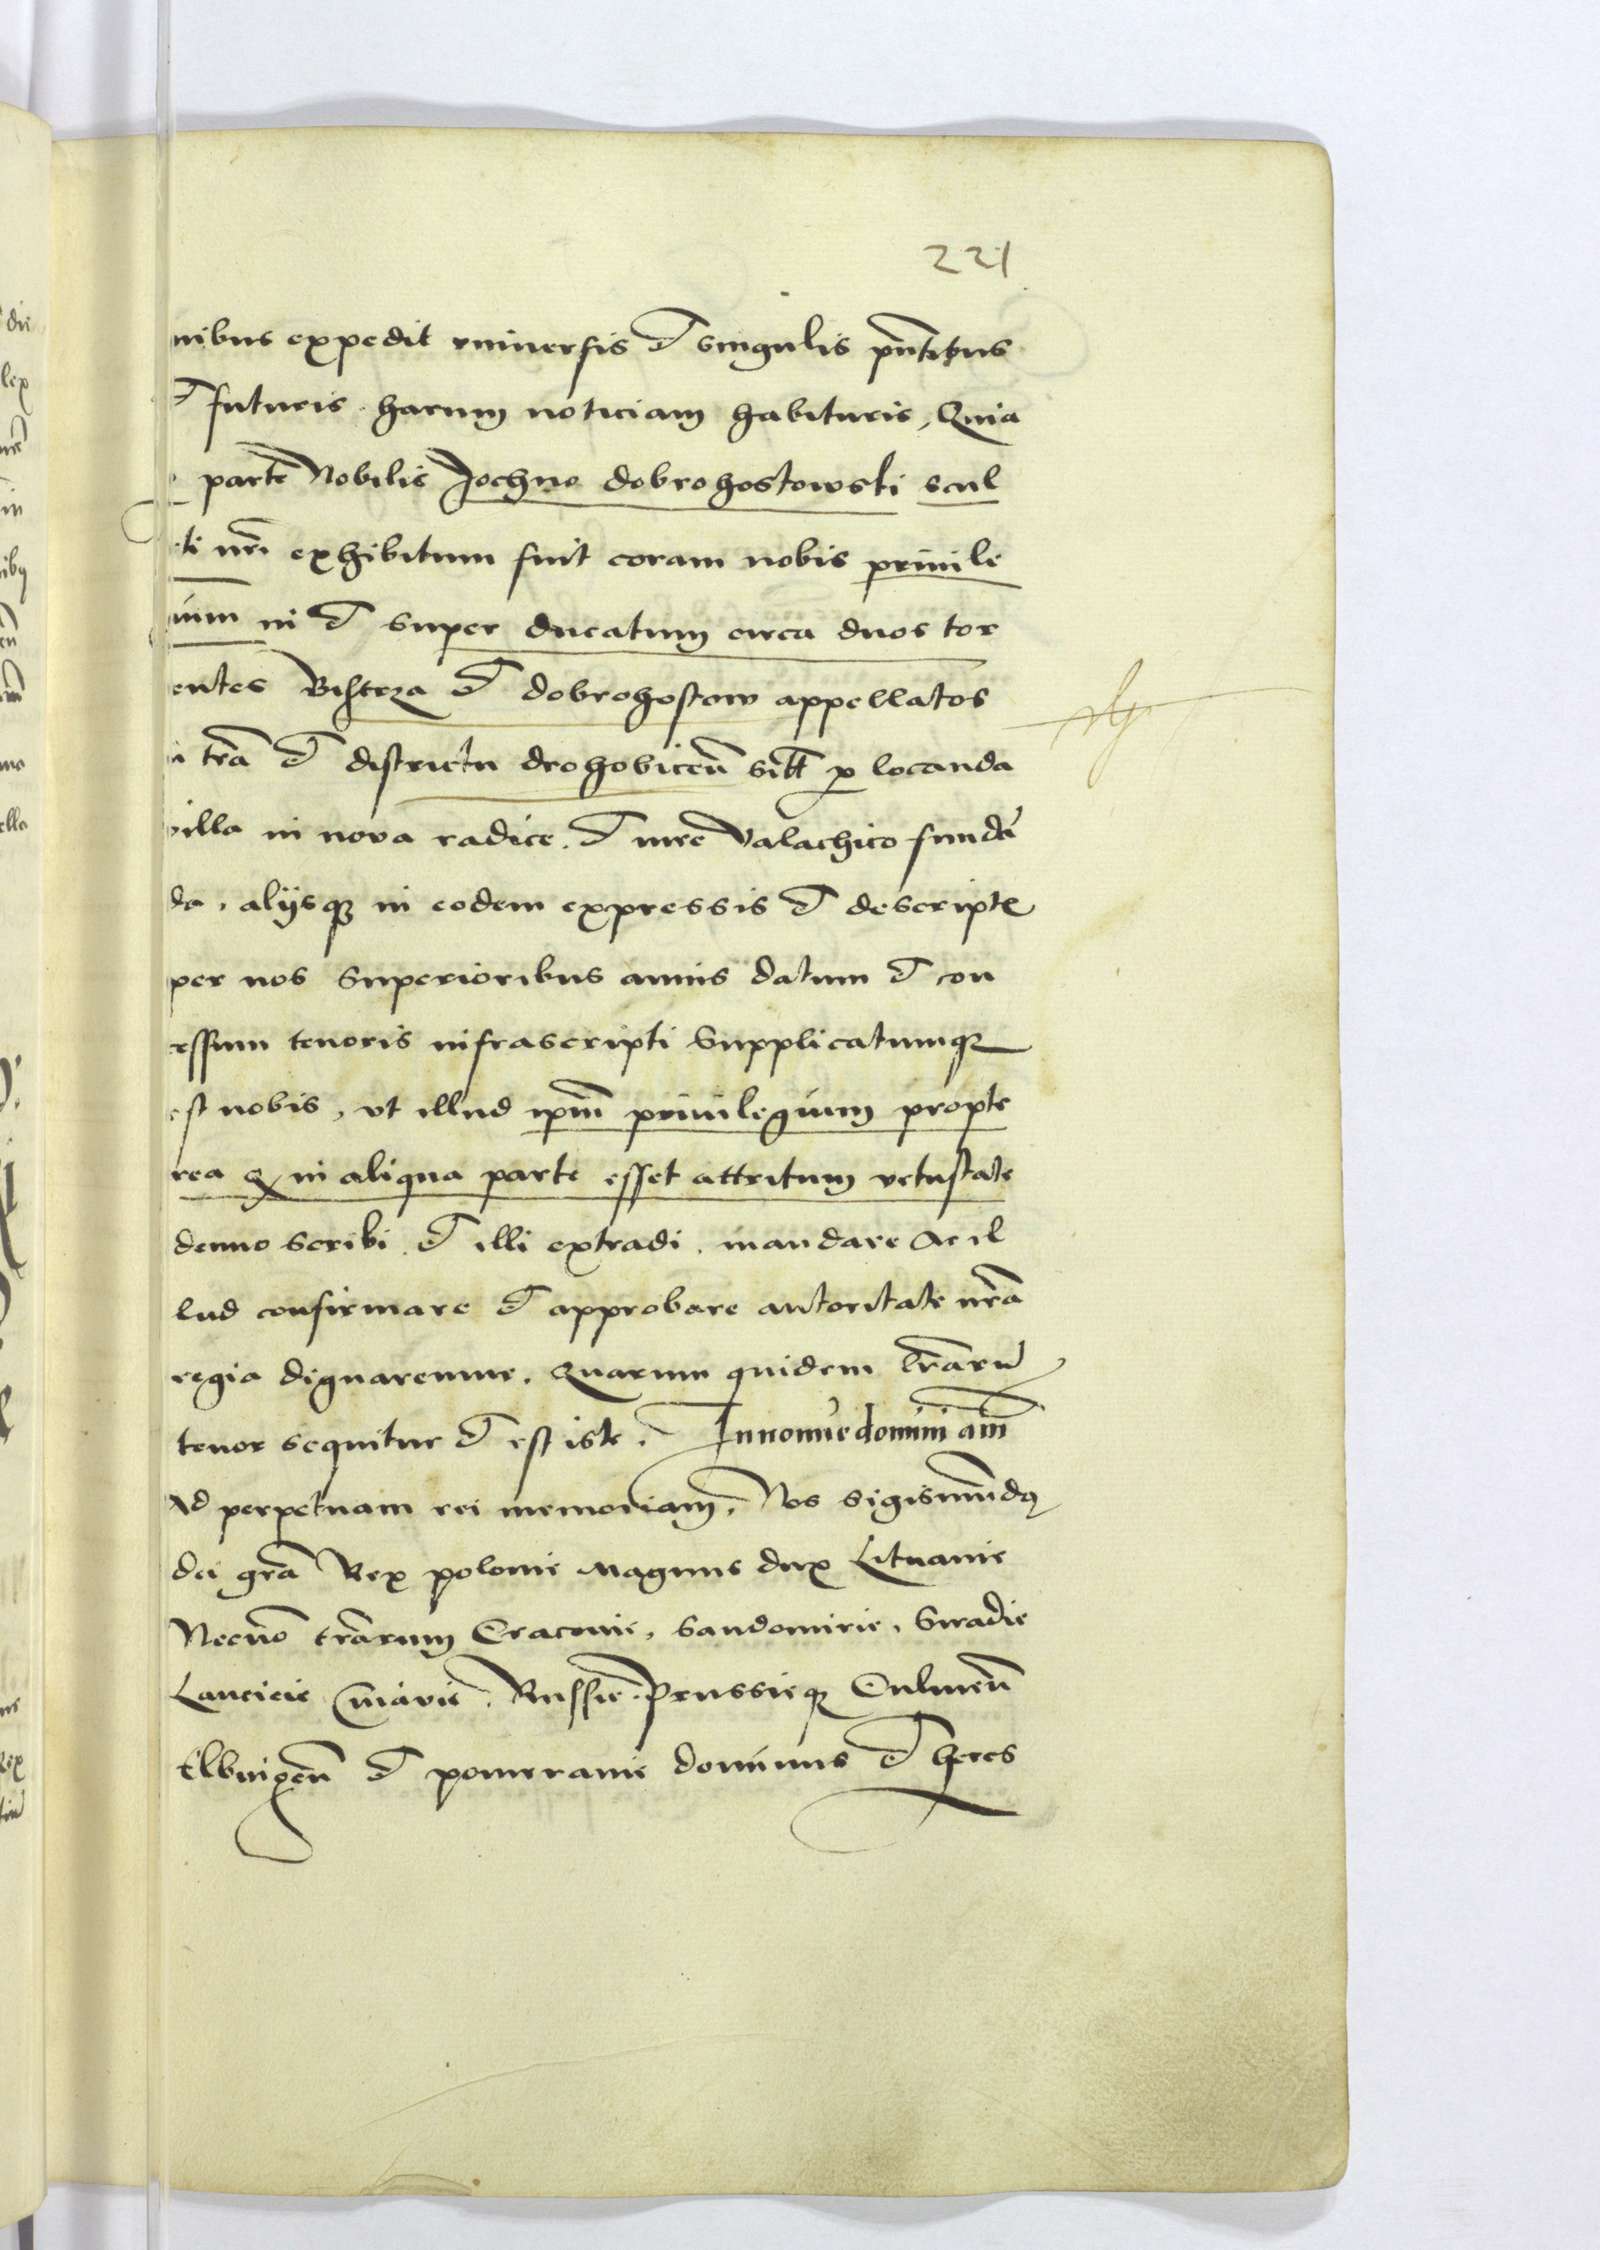 221
nibus expedit vniuersis et singulis pñtibus
et futuris harum noticiam habituris, Quia
parte Nobilis Jochno dobrohostowski scul
ti nr̃i exhibitum fuit coram nobis priuile
uium in et super ducatum circa duos tor
entes Bistrza et dobrohostow appellatos
tr̃a et districtu drohobiceñ sitt p locanda
villa in nova radice et iure Valachico fundã
da, alijsqȝ in eodem expressis et descriptꝭ
per nos superioribus annis datum et con
essum tenoris infrascripti Supplicatumqȝ
est nobis, vt illud ip̃m priuilegium propte
rea qꝫ in aliqua parte esset attritum vetustate
denuo scribi et illi extradi mandare Ac il
lud confirmare et approbare autoritate nr̃a
regia dignaremur. Quarum quidem lr̃arũ
tenor sequitur et est iste. In nomine domini am̃
Ad perpetuam rei memoriam, Nos Sigismũdꝰ
dei gr̃a Rex polonie Magnus dux Lituanie
Necnõ tr̃arum Cracouie, Sandomirie, Siradie
Lancicie Cuiavie, Russie Prussieqȝ Culmeñ
Elbingeñ et pomeranie dominus et heres